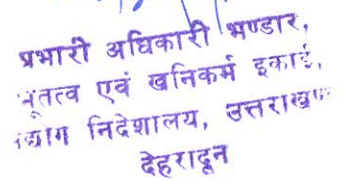 प्रभारी अधिकारी भण्डार,
भूतत्व एवं खनिकर्म इकाई,
उद्योग निदेशालय, उत्तराखण्ड
देहरादून